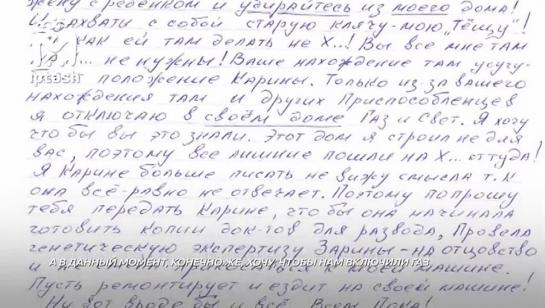 жену с ребёнком и убирайтесь из моего дома!
И захвати с собой старую клячу-мою "Тёщу"!
как ей там делать не Х...! Вы все мне там
... не нужны! Ваше нахождение там усугу-
положение Карины. Только из-за вашего
нахождения там и других Приспособленцев
я отключаю в своём доме Газ и Свет. Я хочу
что бы вы это знали. Этот дом я строил не для
вас, поэтому все лишние пошли на Х... оттуда!
Я Карине больше писать не вижу смысла т.к
она всё-равно не отвечает. Поэтому попрошу
тебя передать Карине, что бы она начинала
готовить копии док-тов для развода, Провела
генетическую экспертизу Зарины-на отцовство
А В ДАННЫЙ МОМЕНТ, КОНЕЧНО ЖЕ, ХОЧУ, ЧТОБЫ НАМ ВКЛЮЧИЛИ ГАЗ.
и не прикасалася к моей машине.
Пусть ремонтирует и ездит на своей машине!
Ну вот вроде бы и всё. Всем Пока!
iptash